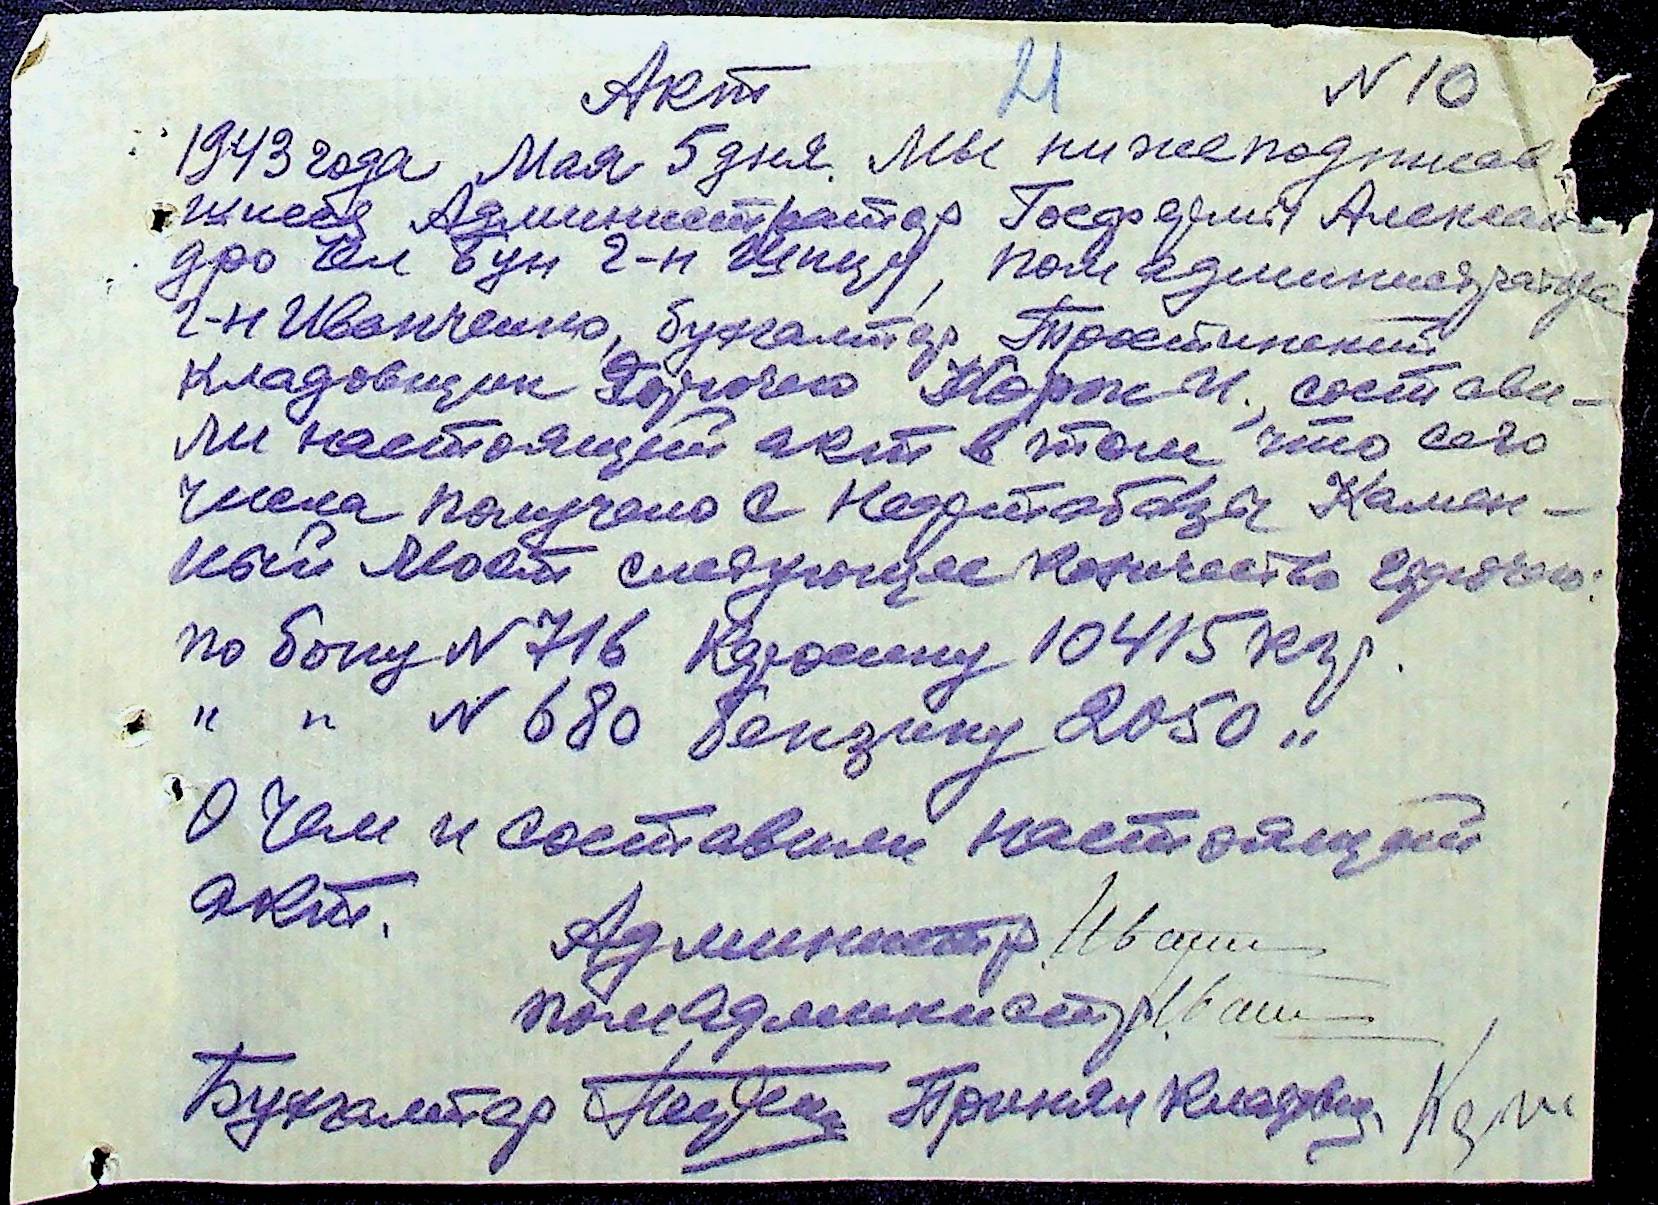 Акт 21 N 10
1943 года Мая 5 дня. Мы нижеподписав
шиеся Администратор Госфермы Алексан
дро Чел Бун г-н Шпицу, пом администратора
г-н Иванченко, бухгалтер Тростинский
Кладовщик Горючего И., состави-
ли настоящий акт в том что сего
числа получено с Нефтабазы Камен-
ный Мост следующее количество горючего:
по бону N 716 Керосину 10415 кгр.
" " N 680 бензину 2050 "
О чем и составили настоящий
акт.
Администр.
пом администр.
Бухгалтер Принял кладовщ.